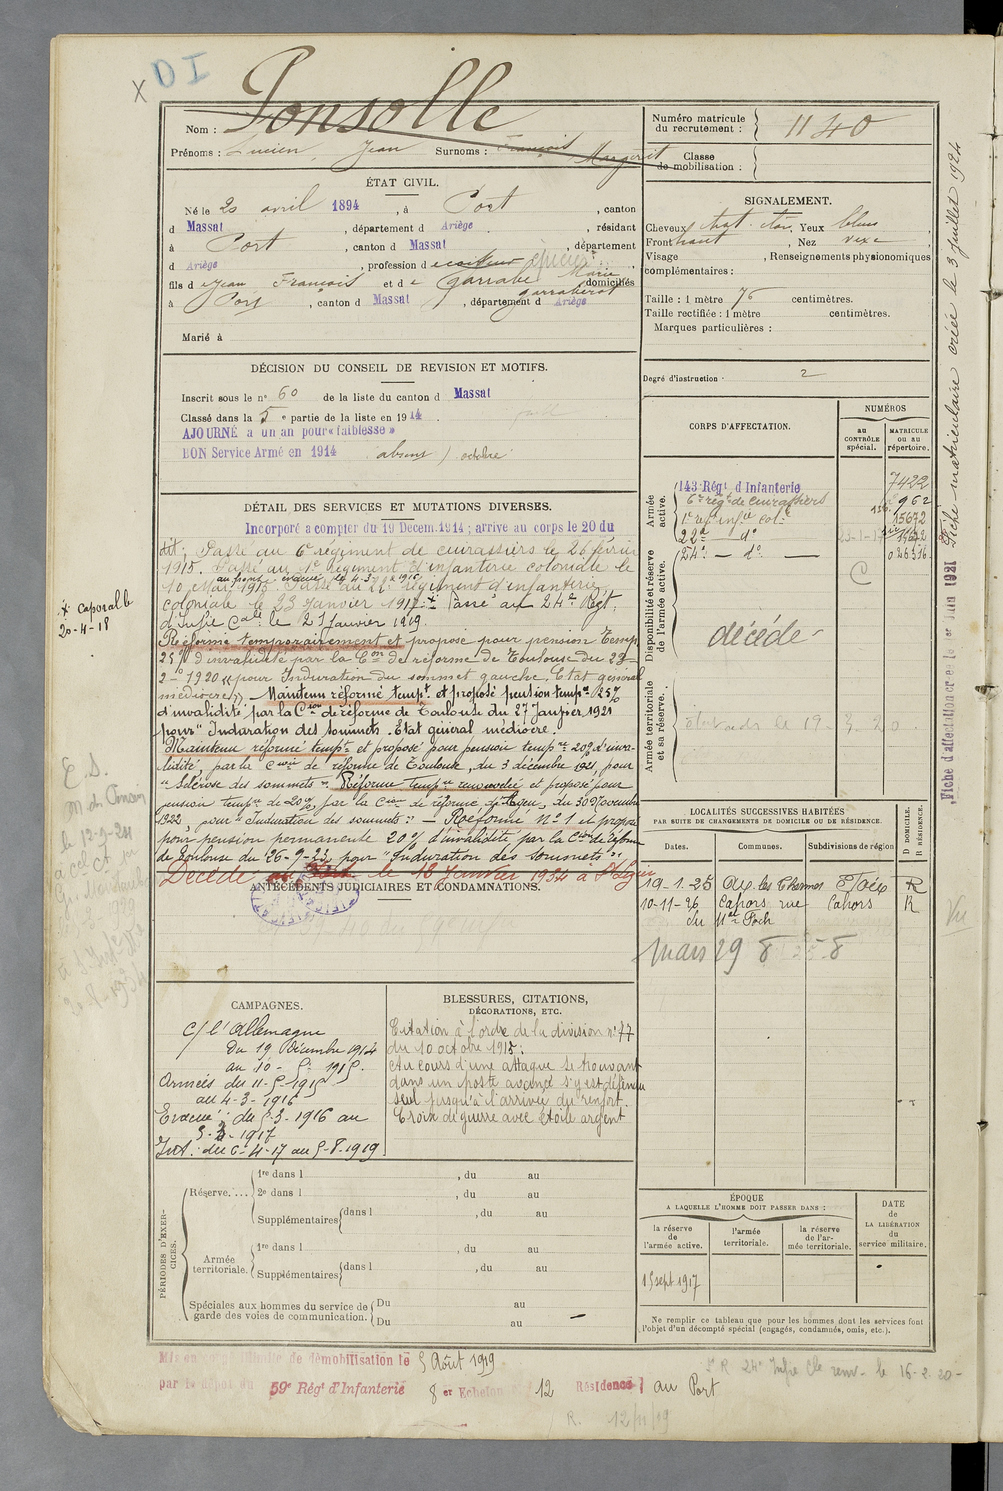 x D I
Nom : Ponsolle
Prénoms : Lucien, Jean Surnoms : François Margerit
Numéro matricule du recrutement : 1140
Classe de mobilisation :
ÉTAT CIVIL.
Né le 20 avril 1894, à Port, canton
d Massat, département d Ariège, résidant
à Port, canton d Massat, département
d Ariège, profession d
fils d e Jean François et d e Garrabe Marie domiciliés
garraberot
à Port, canton d Massat, département d Ariège
Marié à
SIGNALEMENT.
Cheveux chat. Yeux bleus
Front haut, Nez
Visage , Renseignements physionomiques
complémentaires :
Taille : 1 mètre 76 centimètres.
Taille rectifiée : 1 mètre centimètres.
Marques particulières :
Degré d'instruction : 2
DÉCISION DU CONSEIL DE REVISION ET MOTIFS.
Inscrit sous le n° 60 de la liste du canton d Massat
Classé dans la 5 e partie de la liste en 1914
AJOURNÉ a un an pour « faiblesse »
BON Service Armé en 1914 absent octobre
DÉTAIL DES SERVICES ET MUTATIONS DIVERSES.
Incorporé a compter du 19 Décem. 1914 ; arrive au corps le 20 du
dit ; Passé au 6e régiment de cuirassiers le 26 février
1915. Passé au 1e Régiment d'infanterie coloniale le
10 Mars 1915. Passé au 22e régiment d'infanterie
au front evacué le 4-3-1916
coloniale le 23 Janvier 1917. x Passé au 24e Régt.
d'Infie Cale le 21 Janvier 1919.
x Caporal le
20-4-18
Réformé temporairement et proposé pour pension Temp.
25 % d'invalidité par la Con de réforme de Toulouse du 23-
2-1920 « pour Induration du sommet gauche, Etat général
médiocre » – Maintenu réformé tempt et proposé pension tempre 25%
d'invalidité par la Cion de réforme de Toulouse du 27 Janvier 1921
pour Induration des sommets. Etat général médiocre.
Maintenu réformé tempre et proposé pour pension tempre 20% d'inva-
lidité, par la Cion de réforme de Toulouse, du 3 décembre 1921, pour
" Sclérose des sommets ". Réforme tempre renouvelée et proposé pour
pension tempre de 20%, par la Cion de réforme d'Agen, du 30 Novembre
1922, pour "Induration des sommets". – Réformé N° 1 et proposé
pour pension permanente 20% d'invalidité par la Cion de réforme
de Toulouse du 26-9-23 pour "Induration des sommets".
Décédé le 18 Janvier 1934 à St Lizier
ANTÉCÉDENTS JUDICIAIRES ET CONDAMNATIONS.
CORPS D'AFFECTATION.
NUMÉROS
au CONTRÔLE spécial.
MATRICULE ou au répertoire.
Armée active.
143 Régt d'Infanterie 7422
6e rég. de cuirassiers 962
1e regt infie cole 15672
22e — do 23-1-17
24e — do —
Disponibilité et réserve de l'armée active.
C
décédé
Armée territoriale et sa réserve.
19-3-20
LOCALITÉS SUCCESSIVES HABITÉES
PAR SUITE DE CHANGEMENTS DE DOMICILE OU DE RÉSIDENCE.
Dates. Communes. Subdivisions de région D DOMICILE. R RÉSIDENCE.
19-1-25 Ax-les-Thermes Foix R
10-11-26 Cahors rue Cahors R
du Mal Foch
Mars 29 8 25-8
CAMPAGNES.
C/ l'Allemagne
Du 19 Décembre 1914
au 10-5-1915.
Armées du 11-5-1915
au 4-3-1916
Evacué : du 5-3-1916 au
5-4-1917
Int. : du 6-4-17 au 5-8-1919
BLESSURES, CITATIONS,
DÉCORATIONS, ETC.
Citation à l'ordre de la division n° 77
du 10 octobre 1915 :
Au cours d'une attaque se trouvant
dans un poste avancé s'y est défendu
seul jusqu'à l'arrivée du renfort.
Croix de guerre avec étoile argent
PÉRIODES D'EXERCICES.
Réserve....
1re dans l , du au
2e dans l , du au
Supplémentaires dans l , du au
Armée territoriale.
1re dans l , du au
Supplémentaires dans l , du au
Spéciales aux hommes du service de garde des voies de communication.
Du au
Du au
ÉPOQUE
A LAQUELLE L'HOMME DOIT PASSER DANS :
la réserve de l'armée active.
l'armée territoriale.
la réserve de l'armée territoriale.
DATE de LA LIBÉRATION du service militaire.
15 sept 1917
Ne remplir ce tableau que pour les hommes dont les services font
l'objet d'un décompte spécial (engagés, condamnés, omis, etc.).
Mis en congé illimité de démobilisation le 5 Août 1919
par le dépôt du 59e Régt d'Infanterie 8 er Echelon 12 Résidence au Port
S R 24e Infie Cle renv. le 16-2-20-
R. 12/11/19
Fiche matriculaire créée le 3 juillet 1924
Fiche d'affectation créée le 1er Juin 1921
Vu